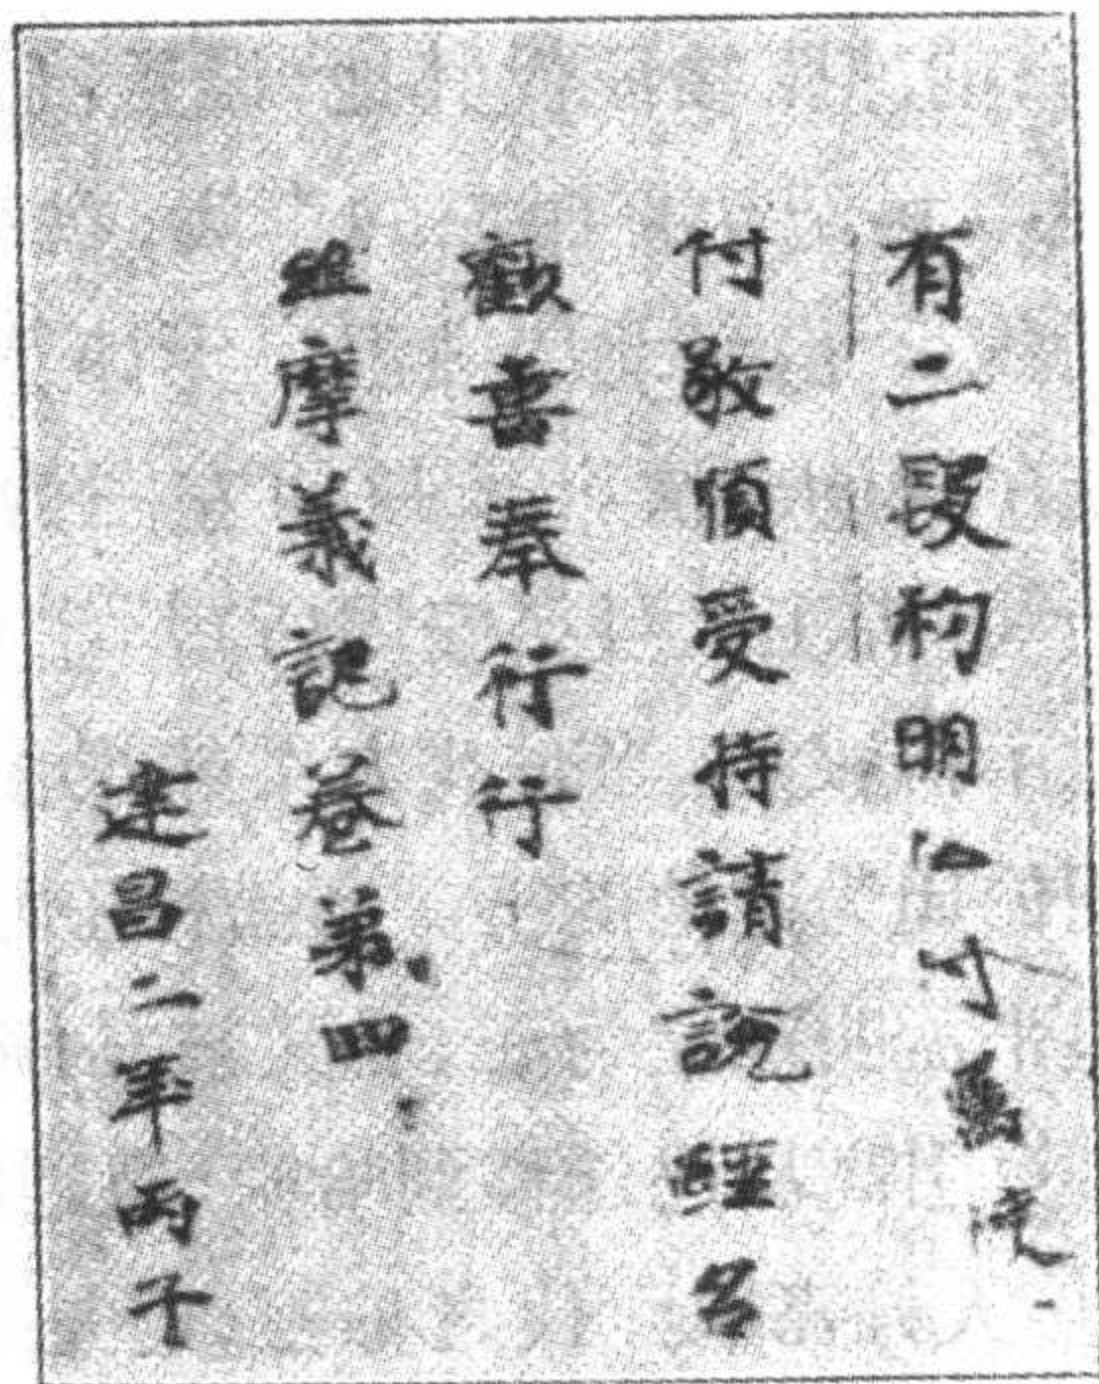 有二段初明以付属流
付敬順受持請説經名
歡喜奉行行
維摩義記卷第四
建昌二年丙子